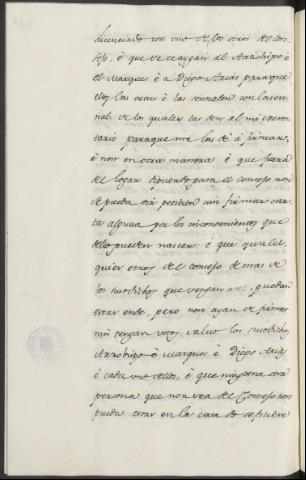 licenciado con uno de los otros del con
sejo, è que se traygan al Arzobispo è
el Marques è a Diego Arias para que
ellos las vean è las señalen con la señal
nal, de lo qual se las den al mi secre
tario para que me las dé à firmar,
è non en otra manera è que fuera
del logar diputado para el consejo non
se pueda oir peticion nin firmar car
ta alguna por los inconvenientes que
dello pueden nascer, è que quales
quier otros del consejo demas de
los susodichos que vengan así puedan
estar ende, pero non ayan de firmar
nin tengan votos salvo los susodichos
Arzobispo è Marques è Diego Arias
è cada uno dellos, è que ninguna otra
persona que non sea del Consejo non
pueda estar en la casa do se ficiere